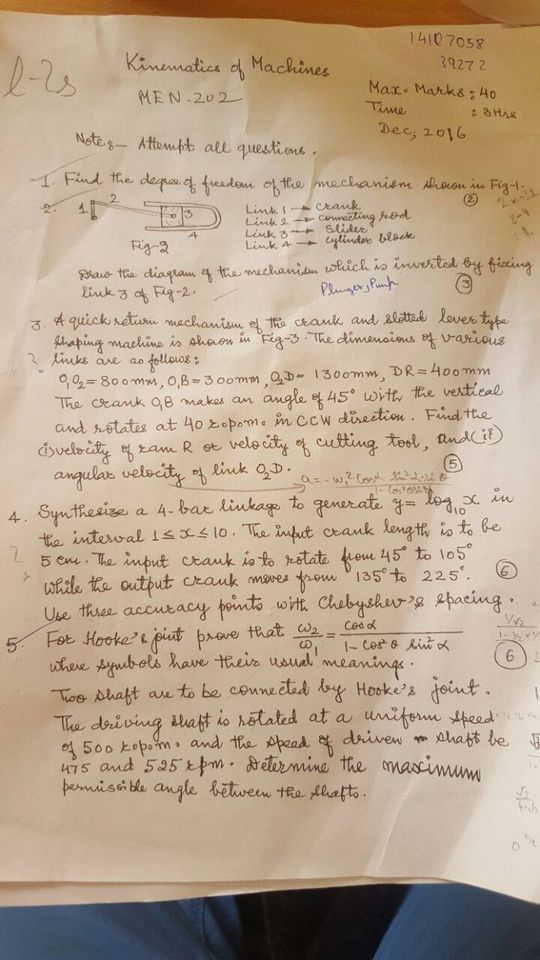 l-2s
14107058
39272
Kinematics of Machines
MEN-202
Max. Marks: 40
Time : 3Hrs
Dec, 2016
Note:- Attempt all questions.
1. Find the degree of freedom of the mechanism shown in Fig-1.
(2)
2. 1 2 3 4
Link 1 → crank
Link 2 → connecting rod
Link 3 → slider
Link 4 → cylinder block
Fig-2
Draw the diagram of the mechanism which is inverted by fixing
link 3 of Fig-2.
(3)
3. A quick return mechanism of the crank and slotted lever type
shaping machine is shown in Fig-3. The dimensions of various
links are as follows:
O1O2=800mm, O1B=300mm, O2D=1300mm, DR=400mm
The crank O1B makes an angle of 45° with the vertical
and rotates at 40 r.p.m. in CCW direction. Find the
(i) velocity of ram R or velocity of cutting tool, and (ii)
angular velocity of link O2D.
(5)
4. Synthesize a 4-bar linkage to generate y= log10 x in
the interval 1≤x≤10. The input crank length is to be
5 cm. The input crank is to rotate from 45° to 105°
while the output crank moves from 135° to 225°.
(6)
Use three accuracy points with Chebyshev's spacing.
5. For Hooke's joint prove that ω2/ω1 = cosα / 1-cos²θ sin²α
(6)
where symbols have their usual meanings.
Two shaft are to be connected by Hooke's joint.
The driving shaft is rotated at a uniform speed
of 500 r.p.m. and the speed of driven shaft be
475 and 525 rpm. Determine the maximum
permissible angle between the shafts.